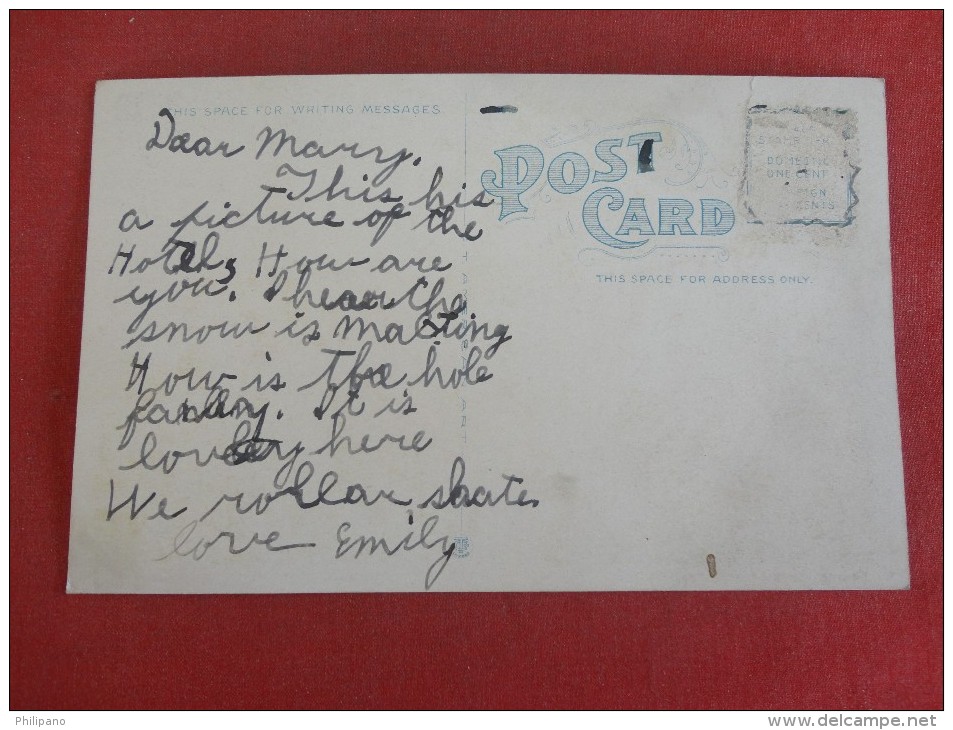 THIS SPACE FOR WRITING MESSAGES.
Dear Mary,
This his
a picture of the
Hotel, How are
you. I hear the
snow is malting
How is the hole
family. It is
lovely here
We rollar skate
love Emily
POST
CARD
THIS SPACE FOR ADDRESS ONLY.
DOMESTIC
ONE CENT
Philipano
www.delcampe.net